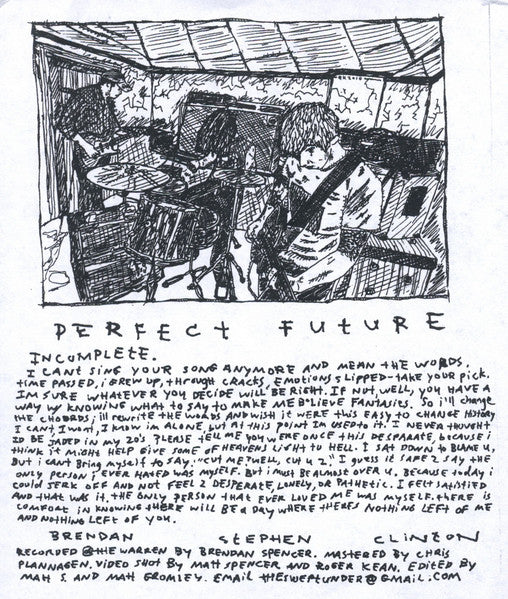 PERFECT FUTURE
INCOMPLETE.
I CANT SING YOUR SONG ANYMORE AND MEAN THE WORDS.
TIME PASSED, I GREW UP, THROUGH CRACKS, EMOTIONS SLIPPED-TAKE YOUR PICK.
IM SURE WHATEVER YOU DECIDE WILL BE RIGHT. IF NOT, WELL, YOU HAVE A
WAY W/ KNOWING WHAT TO SAY TO MAKE ME B'LIEVE FANTASIES. SO I'll CHANGE
THE CHORDS; ILL REWRITE THE WORDS AND WISH IT WERE THIS EASY TO CHANGE HISTORY
I CANT I WONT, I KNOW IM ALONE, BUT AT THIS POINT IM USED TO IT. I NEVER THOUGHT
ID BE JADED IN MY 20'S PLEASE TELL ME YOU WERE ONCE THIS DESPARATE, BECAUSE I
THINK IT MIGHT HELP GIVE SOME OF HEAVENS LIGHT TO HELL. I SAT DOWN TO BLAME U,
BUT I CANT BRING MYSELF TO SAY. "CUT ME? WELL, CUT U 2." I GUESS IT SAFE 2 SAY THE
ONLY PERSON I EVER HATED WAS MYSELF. BUT I MUST BE ALMOST OVER U, BECAUSE TODAY I
COULD JERK OFF AND NOT FEEL 2 DESPERATE, LONELY, OR PATHETIC. I FELT SATISFIED
AND THAT WAS IT. THE ONLY PERSON THAT EVER LOVED ME WAS MYSELF. THERE IS
COMFORT IN KNOWING THERE WILL BE A DAY WHERE THERES NOTHING LEFT OF ME
AND NOTHING LEFT OF YOU.
BRENDAN STEPHEN CLINTON
RECORDED @ THE WARREN BY BRENDAN SPENCER. MASTERED BY CHRIS
PLANNAGEN. VIDEO SHOT BY MATT SPENCER AND ROGER KEAN. EDITED BY
MATT S. AND MATT GROMLEY. EMAIL THESWEPTUNDER@GMAIL.COM